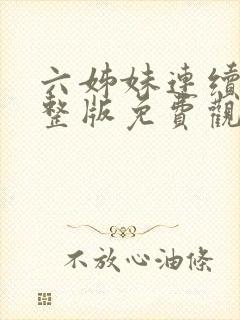 六姊妹連續
整版免費觀
不放心油條